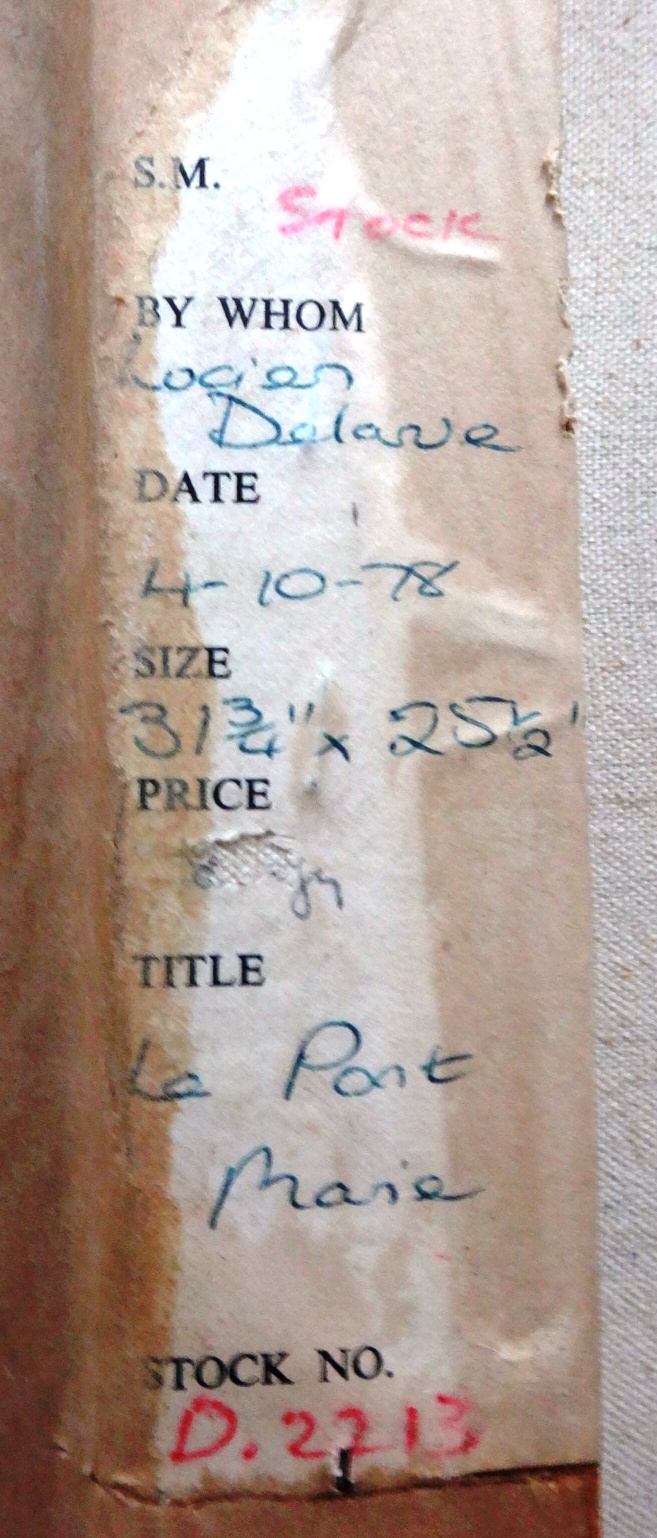 S.M.
Stock
BY WHOM
Lucien
Delarue
DATE
4-10-78
SIZE
31 3/4" x 25 1/2"
PRICE
TITLE
Le Pont
Marie
STOCK NO.
D.2213